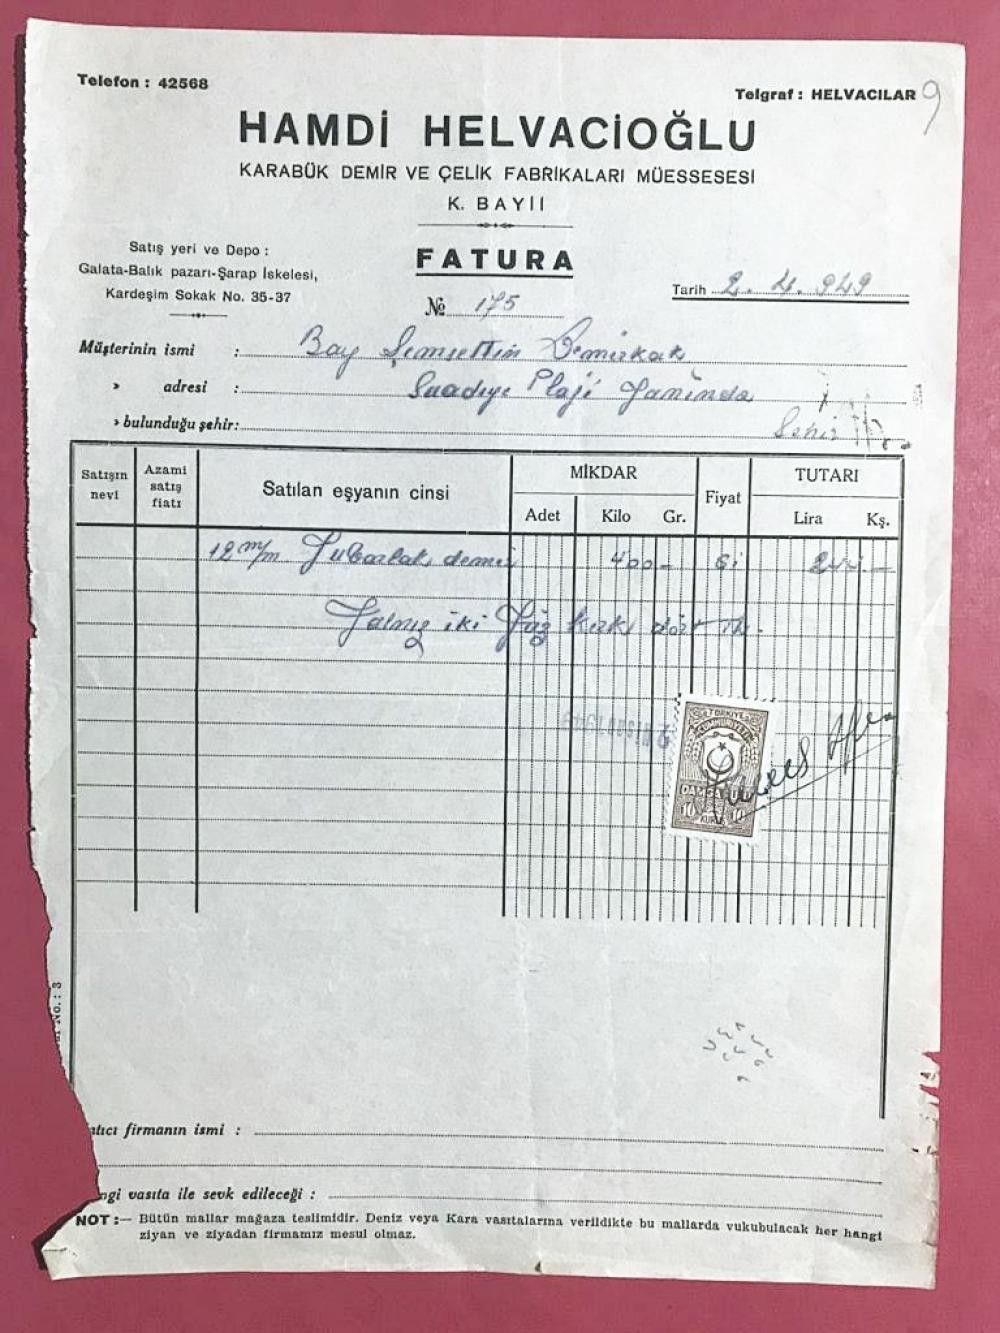 Telefon : 42568
Telgraf : HELVACILAR 9
HAMDİ HELVACİOĞLU
KARABÜK DEMİR VE ÇELİK FABRİKALARI MÜESSESESİ
K. BAYİİ
Satış yeri ve Depo :
Galata-Balık pazarı-Şarap İskelesi,
Kardeşim Sokak No. 35-37
FATURA
№ 175
Tarih 2. 4. 949
Müşterinin ismi : Bay Şemsettin Demirkak
» adresi : Suadiye Plaji Yaninda
» bulunduğu şehir: Şehir
Satışın nevi
Azami satış fiatı
Satılan eşyanın cinsi
MİKDAR
Adet Kilo Gr.
Fiyat
TUTARI
Lira Kş.
12 m/m Yuvarlak demir 400- 61 244.-
Yalnız iki Yüz kırk dört
2 Nisan 1949
TÜRKİYE
CUMHURİYETİ
DAMGA PULU
10 10
KURUŞ
No. : 3
atıcı firmanın ismi :
ngi vasıta ile sevk edileceği :
NOT :— Bütün mallar mağaza teslimidir. Deniz veya Kara vasıtalarına verildikte bu mallarda vukubulacak her hangi
ziyan ve ziyadan firmamız mesul olmaz.